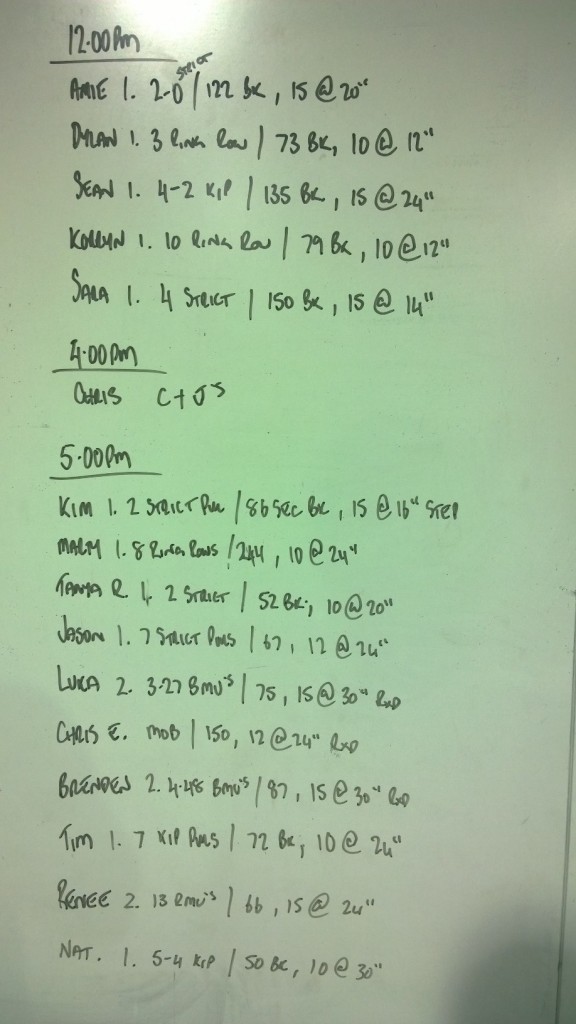 12.00pm
STRICT
AMIE 1. 2-0 / 122 BK, 15 @ 20"
DYLAN 1. 3 RING ROW / 73 BK, 10 @ 12"
SEAN 1. 4-2 KIP / 135 BK, 15 @ 24"
KORRYN 1. 10 RING ROW / 79 BK, 10 @ 12"
SARA 1. 4 STRICT / 150 BK, 15 @ 14"
4.00pm
CHRIS C+J's
5.00pm
KIM 1. 2 STRICT PULL / 86 SEC BK, 15 @ 16" STEP
1. 8 RING ROWS / 244, 10 @ 24"
TANYA R 1. 2 STRICT / 52 BK, 10 @ 20"
JASON 1. 7 STRICT PULLS / 67, 12 @ 24"
LUKA 2. 3-27 BMU's / 75, 15 @ 30" RXD
CHRIS E. MOB / 150, 12 @ 24" RXD
BRENDEN 2. 4-48 BMU's / 87, 15 @ 30" RXD
TIM 1. 7 KIP PULLS / 72 BK, 10 @ 24"
RENEE 2. 13 RMU's / 66, 15 @ 24"
NAT. 1. 5-4 KIP / 50 BK, 10 @ 30"